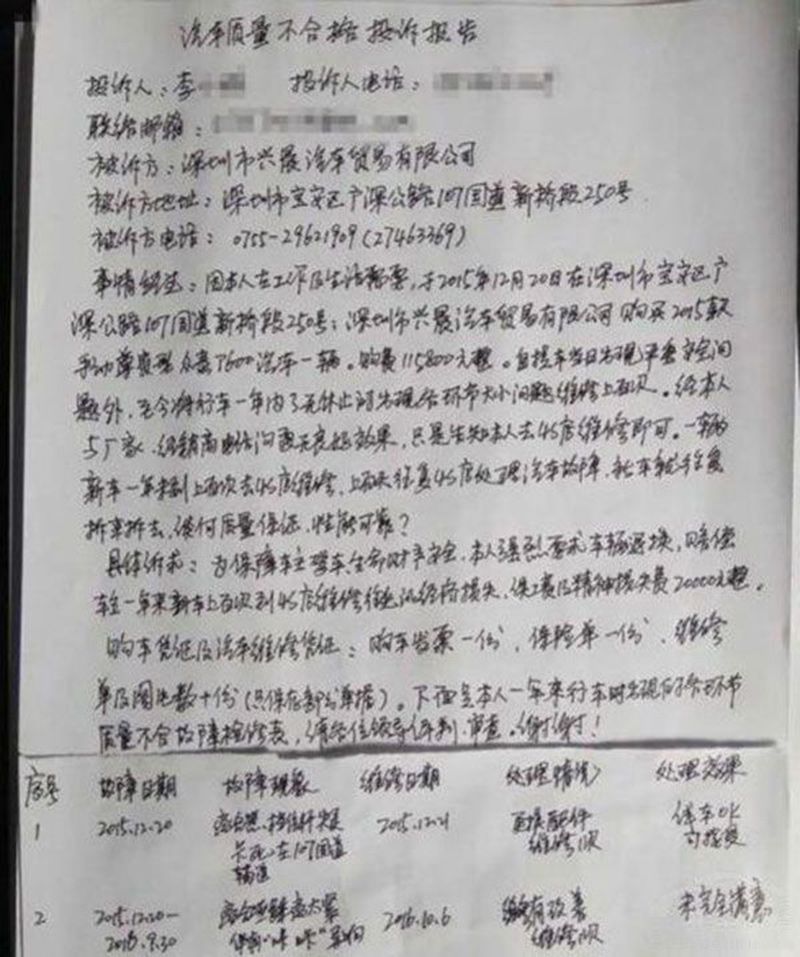 汽车质量不合格投诉报告
投诉人：李 投诉人电话：
联络邮箱：
被诉方：深圳市兴晨汽车贸易有限公司
被诉方地址：深圳市宝安区广深公路107国道新桥段250号
被诉方电话：0755-29621909(27463369)
事情经过：因本人在工作及生活需要，于2015年12月20日在深圳市宝安区广
深公路107国道新桥段250号：深圳市兴晨汽车贸易有限公司购买2015款
手动尊贵型众泰T600汽车一辆。购费115800元整。自提车当日出现严重安全问
题外，至今将行车一年内了无休止的出现各环节大小问题维修上百次。经本人
与厂家、经销商电话沟通无良好效果，只是告知本人去4S店维修即可。一辆
新车一年来到上百次去4S店维修，上百次往复4S店处理汽车故障，
拆来拆去，谈何质量保证，性能可靠？
具体诉求：为保障车主驾车生命财产安全，本人强烈要求车辆退换，赔偿
车主一年来新车上百次到4S店维修往返的经济损失，误工费及精神损失费20000元整。
购车凭证及汽车维修凭证：购车发票一份，保险单一份，维修
单及图片数十份(只保存部分单据)。下面是本人一年来行车时出现的各个环节
质量不合故障检修表，请各位领导评判、审查。谢谢！
序号 故障日期 故障现象 维修日期 处理情况 处理效果
1 2015.12.20 离合器、档位杆 2015.12.21 更换配件 停车OK
卡死，在107国道 维修1次 可接受
辅道
2 2015.12.20- 2016.10.6 有改善 未完全满意
2016.9.30 "咔咔"异响 维修